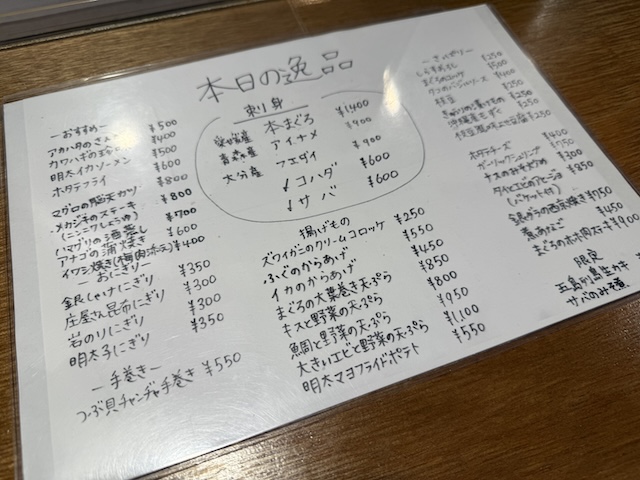 本日の逸品
刺し身
本まぐろ ¥1400
愛媛産 アイナメ ¥900
青森産 フエダイ ¥900
大分産 〆コハダ ¥600
〆サバ ¥600
ーおすすめー
アカハタの ¥500
カワハギの ¥400
明太イカソーメン ¥500
ホタテフライ ¥600
マグロの カツ ¥800
メカジキのステキ ¥800
(ニンニクしょうゆ)
ハマグリの酒蒸し ¥700
アナゴの蒲焼き ¥600
イワシ焼き(梅肉添え) ¥400
ーおにぎりー
銀しゃけにぎり ¥350
庄屋さん昆布にぎり ¥300
岩のりにぎり ¥300
明太子にぎり ¥350
ー手巻きー
つぶ貝チャンヂャ手巻き ¥550
揚げもの
ズワイガニのクリームコロッケ ¥250
ふぐのからあげ ¥550
イカのからあげ ¥450
まぐろの大葉巻き天ぷら ¥850
キスと野菜の天ぷら ¥800
鯛と野菜の天ぷら ¥950
大きいエビと野菜の天ぷら ¥1,100
明太マヨフライドポテト ¥550
¥250
¥500
¥400
枝豆 ¥250
きゅうりの漬けもの ¥250
沖縄産もずく ¥250
¥250
ホタテチーズ ¥400
ガーリックシュリンプ ¥700
ナスのみぞだめ ¥300
タイとエビのアヒージョ ¥850
(バケット付)
銀ダラの西京焼き ¥750
煮あなご ¥450
まぐろのホホ肉ステーキ ¥900
限定
五島列島生カキ
サバのみそ煮